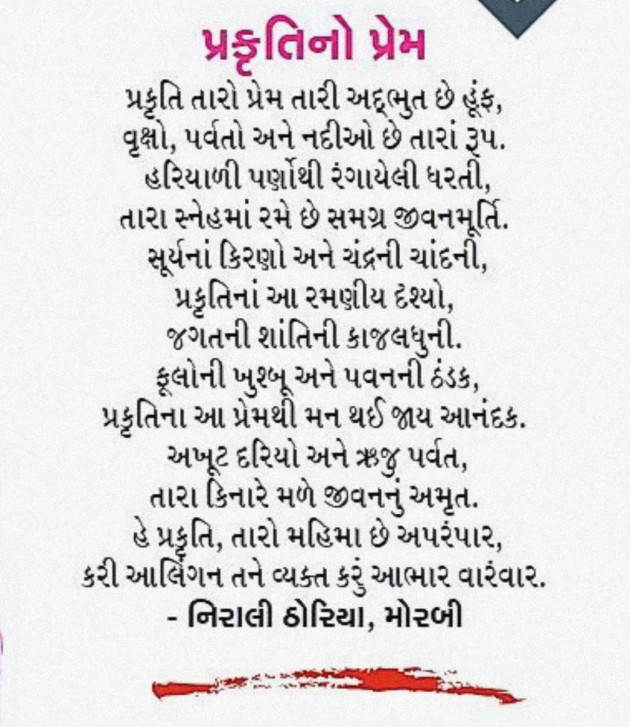 પ્રકૃતિનો પ્રેમ
પ્રકૃતિ તારો પ્રેમ તારી અદ્ભુત છે હૂંફ,
વૃક્ષો, પર્વતો અને નદીઓ છે તારાં રૂપ.
હરિયાળી પર્ણોથી રંગાયેલી ધરતી,
તારા સ્નેહમાં રમે છે સમગ્ર જીવનમૂર્તિ.
સૂર્યનાં કિરણો અને ચંદ્રની ચાંદની,
પ્રકૃતિનાં આ રમણીય દૃશ્યો,
જગતની શાંતિની કાજલધુની.
ફૂલોની ખુશ્બૂ અને પવનની ઠંડક,
પ્રકૃતિના આ પ્રેમથી મન થઈ જાય આનંદક.
અખૂટ દરિયો અને ઋજુ પર્વત,
તારા કિનારે મળે જીવનનું અમૃત.
હે પ્રકૃતિ, તારો મહિમા છે અપરંપાર,
કરી આલિંગન તને વ્યક્ત કરું આભાર વારંવાર.
- નિરાલી ઠોરિયા, મોરબી